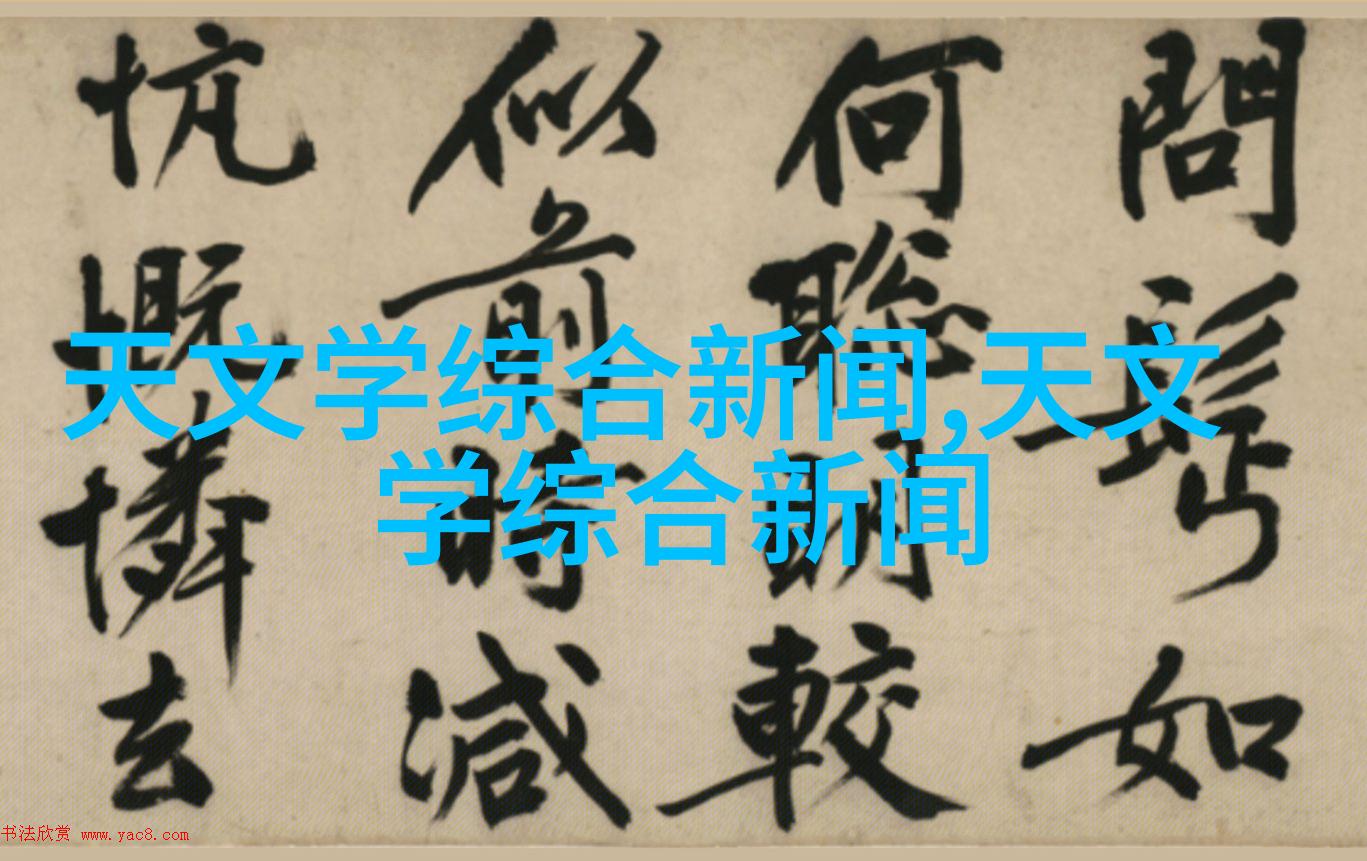 天文学综合新闻,天文
学综合新闻
問如
何聰明較
似前時減
忼慨憐去
书法欣赏 www.yac8.com